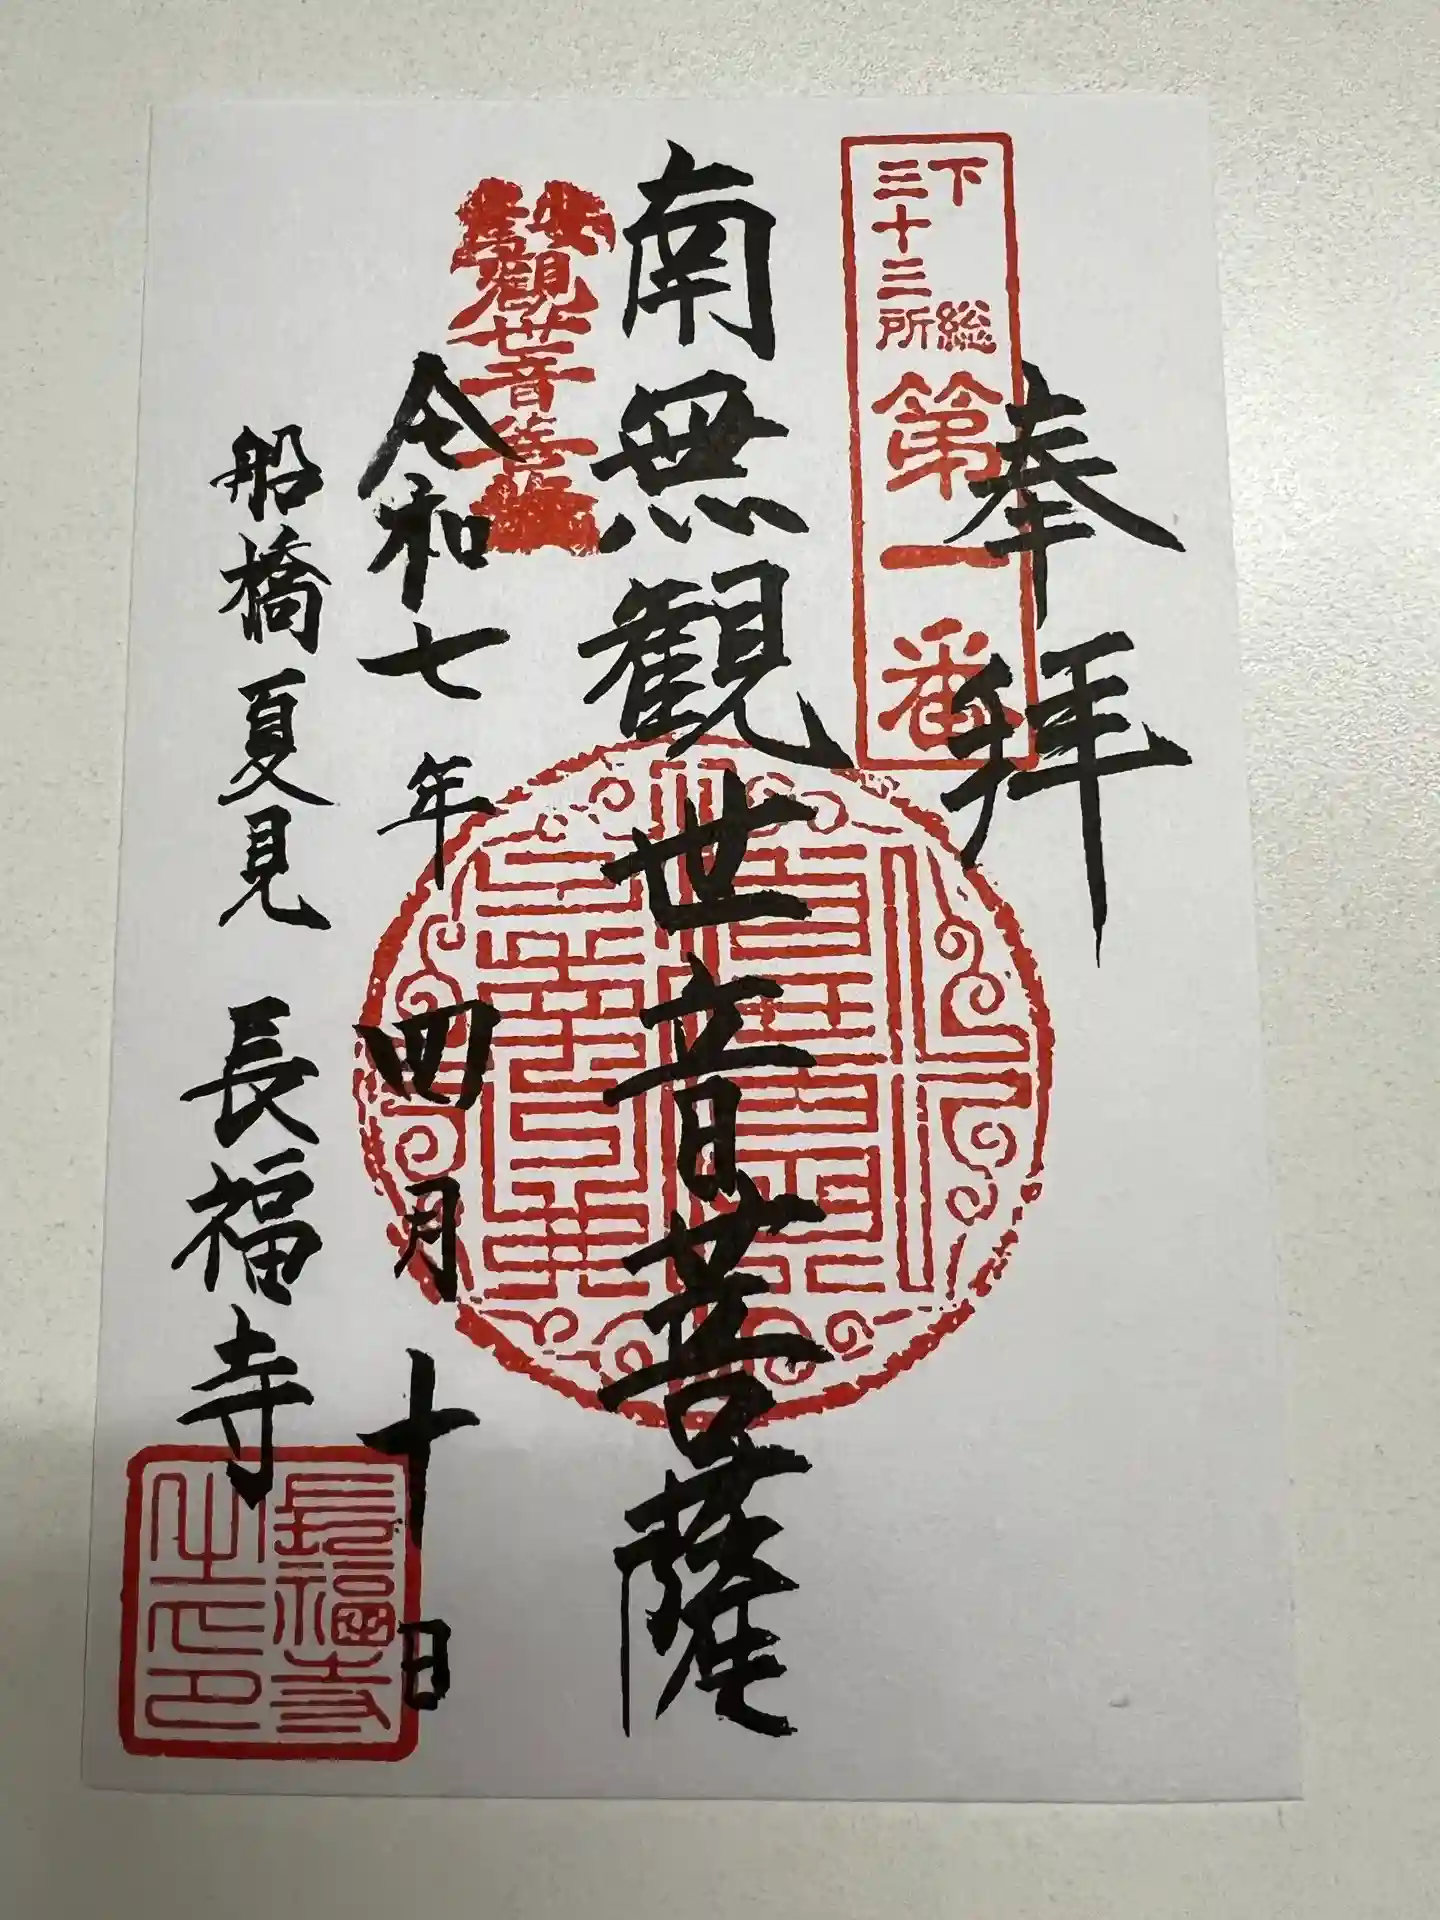 奉拝
下総
三十三所
第一番
南無観世音菩薩
観世音菩薩
令和七年四月十日
船橋夏見 長福寺
長福寺
之印